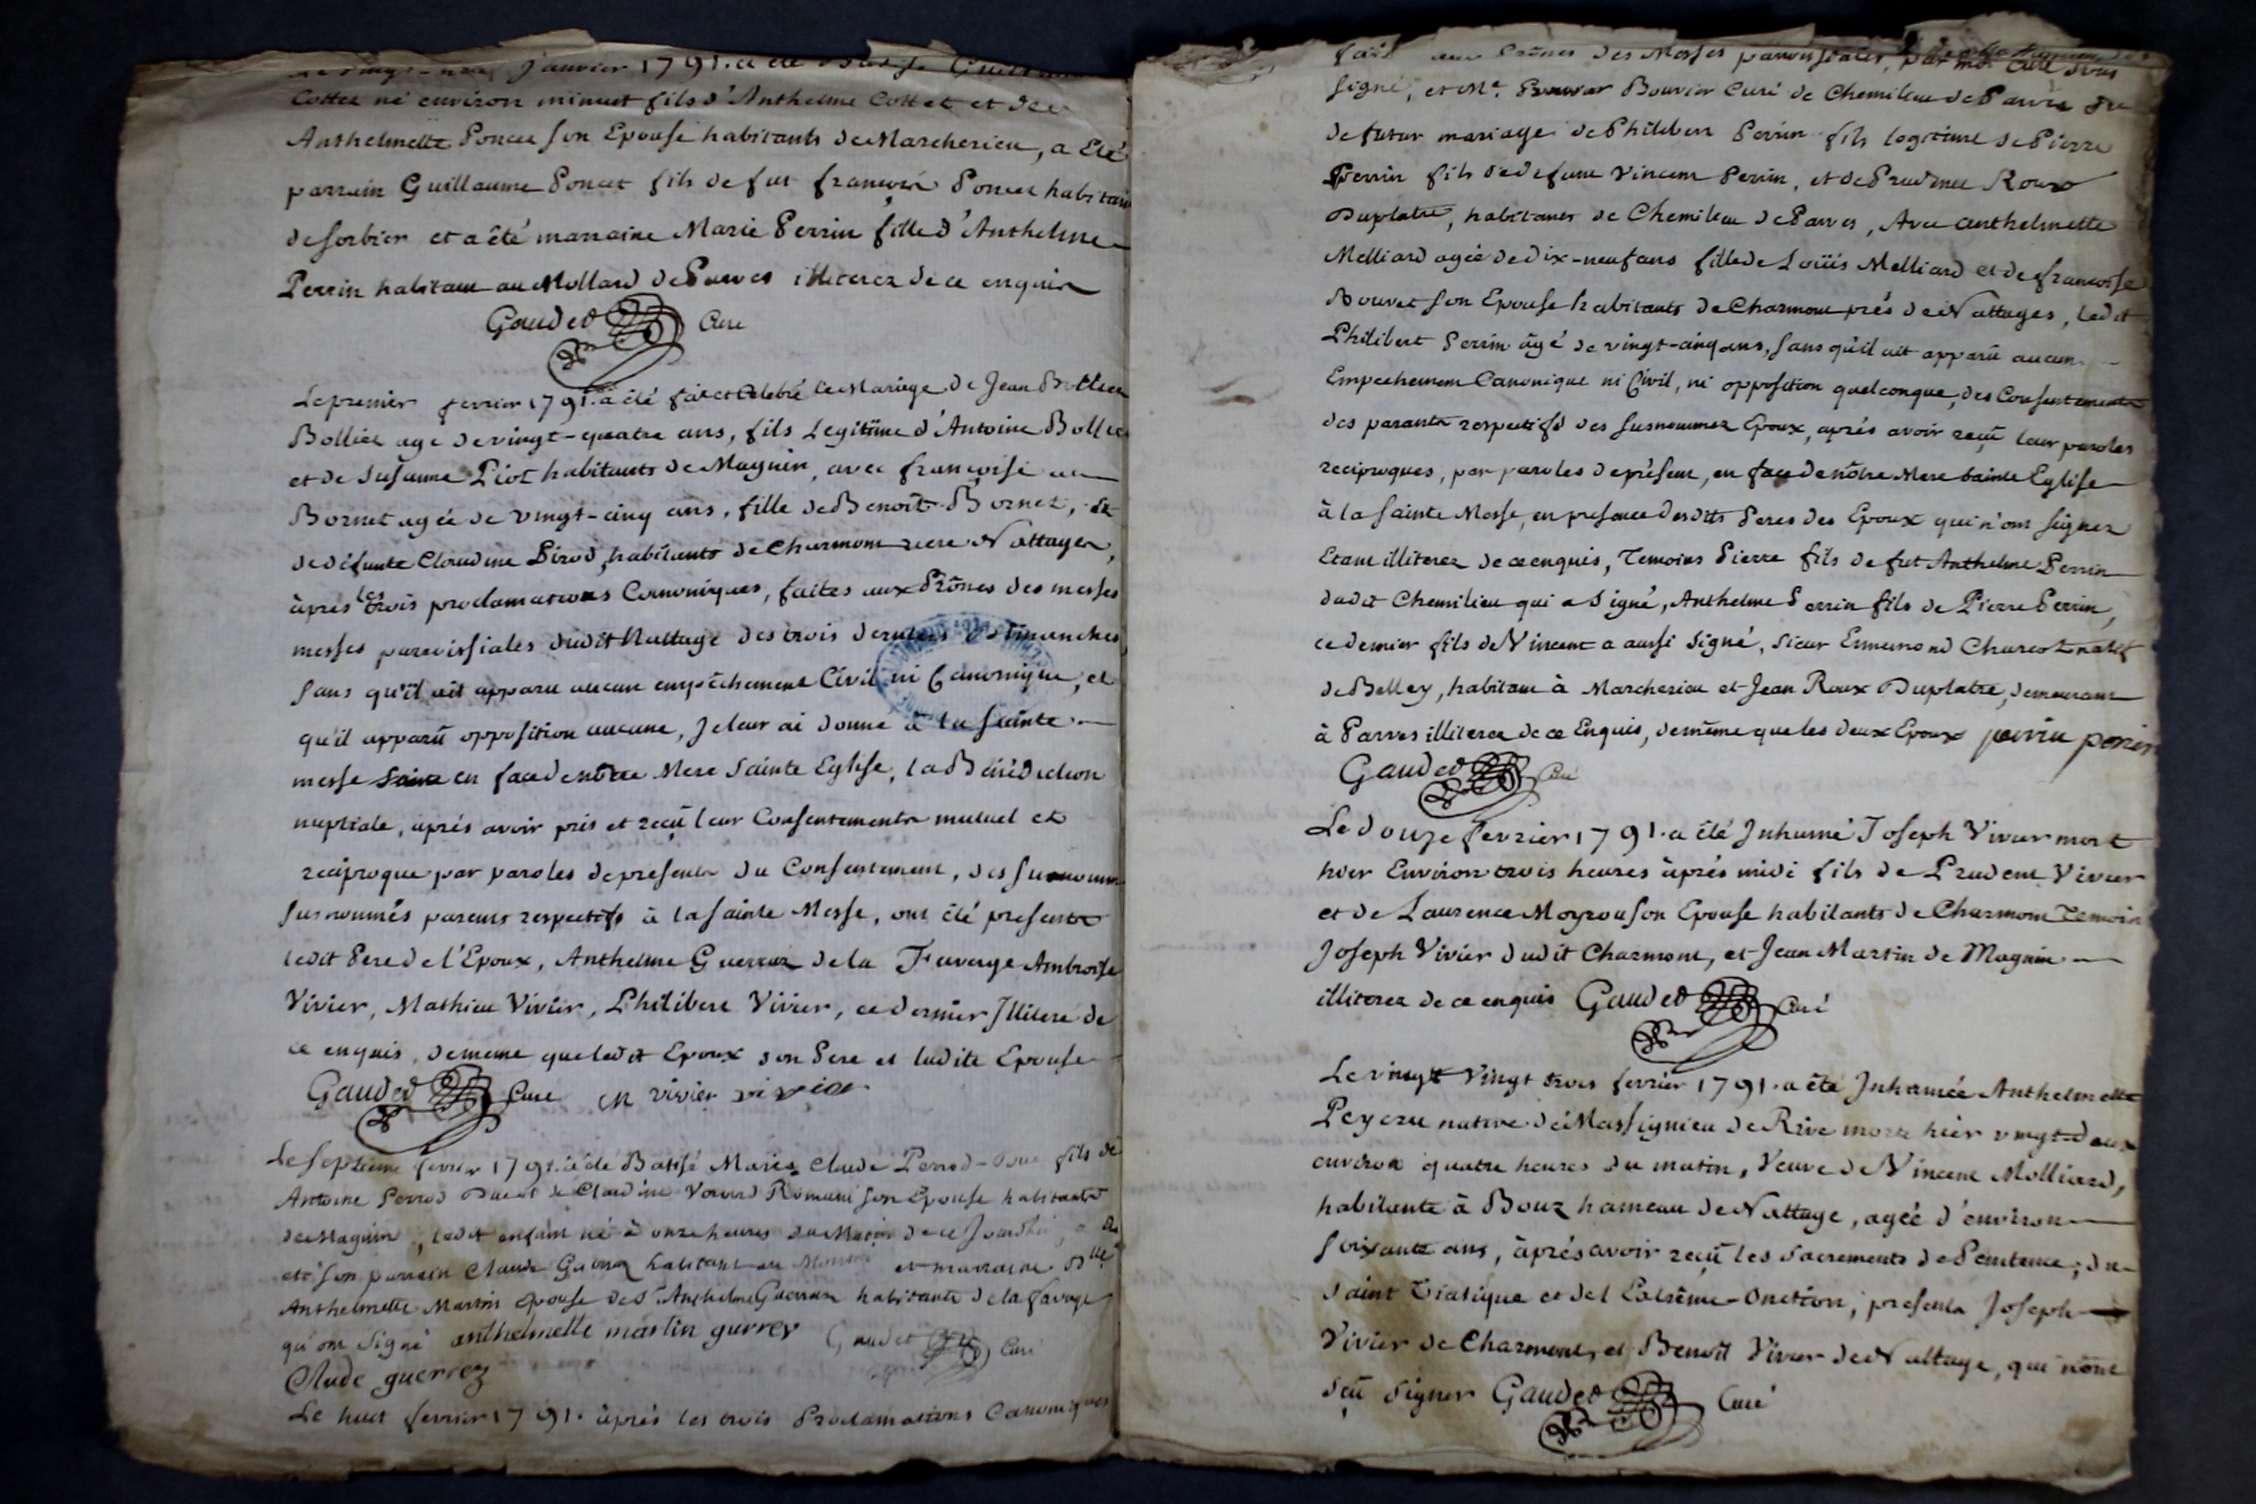 Le vingt-neuf Janvier 1791. a été Batisé Guillaume
Cottet né environ minuit fils d'Anthelme Cottet et de
Anthelmette Poncet son Epouse habitants de Marcherieu, a Eté
parrain Guillaume Poncet fils de fut françois Poncet habitant
de sorbier et a êté marraine Marie Perrin fille d'Anthelme
Perrin habitant au Mollard de Parves illiterez de ce enquis
Gaudet Curé
Le premier fevrier 1791. a été fait et Celebré le Mariage de Jean
Bolliet agé de vingt-quatre ans, fils Legitime d'Antoine Bolliet
et de Susanne Piot habitants de Magnin, avec françoise
Bornet agée de vingt-cinq ans, fille de Benoît Bornet, et
de défunte Claudine Pirod, habitants de Charmont riere Nattages,
àpres les trois proclamations Canoniques, faites aux Prônes des messes
messes paroissiales dudit Nattage des trois derniers Dimanches
sans qu'il ait apparu aucun empêchement Civil ni Canonique, et
qu'il apparü opposition aucune, Je leur ai donné à la sainte
messe en face de nôtre Mere Sainte Eglise, la Bénédiction
nuptiale, àprés avoir pris et reçû leur Consentements mutuel et
reciproque par paroles de presents du Consentement, des susnommés
susnommés parents respectifs à la sainte Messe, ont êté presents
ledit Pere de l'Epoux, Anthelme Guerraz de la Faverge Ambroise
Vivier, Mathieu Vivier, Philibert Vivier, ce dernier Illiteré de
ce enquis, de meme que ledit Epoux son Pere et ladite Epouse
Gaudet Curé m vivier vivier
Le septieme fevrier 1791. a été Batisé Marie Claude Perrod-Duc fils de
Antoine Perrod Duc et de Claudine Romani son Epouse habitants
de Magnin, ledit enfant né à onze heures du Matin de ce Jourdhui, a
eté son parrain Claude habitant au et marraine Dlle
Anthelmette Martin epouse de Sr Anthelme Guerraz habitante de la faverge
qu'ont signé anthelmette martin gurrey Gaudet Curé
Clude guerrez
Le huit fevrier 1791. àprés les trois Proclamations Canoniques
fait aux Prônes des Messes parroissiales, par moi Curé sous
signé, et Mr. Bouvier Curé de Chemilieu de Parves du
de futur mariage de Philibert Perrin fils legitime de Pierre
Perrin fils de defunt Vincent Perrin, et de Prudence Roux
Duplatre, habitants de Chemilieu de Parves, Avec anthelmette
Melliard agée de dix-neuf ans fille de Loüis Melliard et de françoise
Bouvet son Epouse habitants de Charmont prés de Nattages, ledit
Philibert Perrin âgé de vingt-cinq ans, sans qu'il ait apparü aucun
Empechement Canonique ni Civil, ni opposition quelconque, des Consentements
des parents respectifs des susnommez Epoux, aprés avoir reçû leur paroles
reciproques, par paroles de présent, en face de nôtre Mere sainte Eglise
à la sainte Messe, en presence desdits Peres des Epoux qui n'ont signer
Etant illiterez de ce enquis, Temoins Pierre fils de fut Anthelme Perrin
dudit Chemilieu qui a signé, Anthelme Perrin fils de Pierre Perrin,
ce dernier fils de Vincent a aussi signé, sieur Ennemond Charcot natif
de Belley, habitant à Marcherieu et Jean Roux Duplatre, demeurant
à Parves illiterez de ce Enquis, de même que les deux Epoux perrin perrin
Gaudet Curé
Le douze fevrier 1791. a êté Inhumé Joseph Vivier mort
hier Environ trois heures àprés midi fils de Prudent Vivier
et de Laurence Moyrou son Epouse habitants de Charmont Temoin
Joseph Vivier dudit Charmont, et Jean Martin de Magnin
illiterez de ce enquis Gaudet Curé
Le vingt Vingt trois fevrier 1791. a êté Inhumée Anthelmette
Peycru native de Massignieu de Rive morte hier vingt-deux
environ quatre heures du matin, Veuve de Vincent Molliard,
habitante à Bouz hameau de Nattage, agée d'environ
soixante ans, àprés avoir reçû les sacrements de Penitence, du
saint Viatique et de l'Extrême-Onction, presents Joseph
Vivier de Charmont, et Benoît Vivier de Nattage, qui n'ont
sçû signer Gaudet Curé